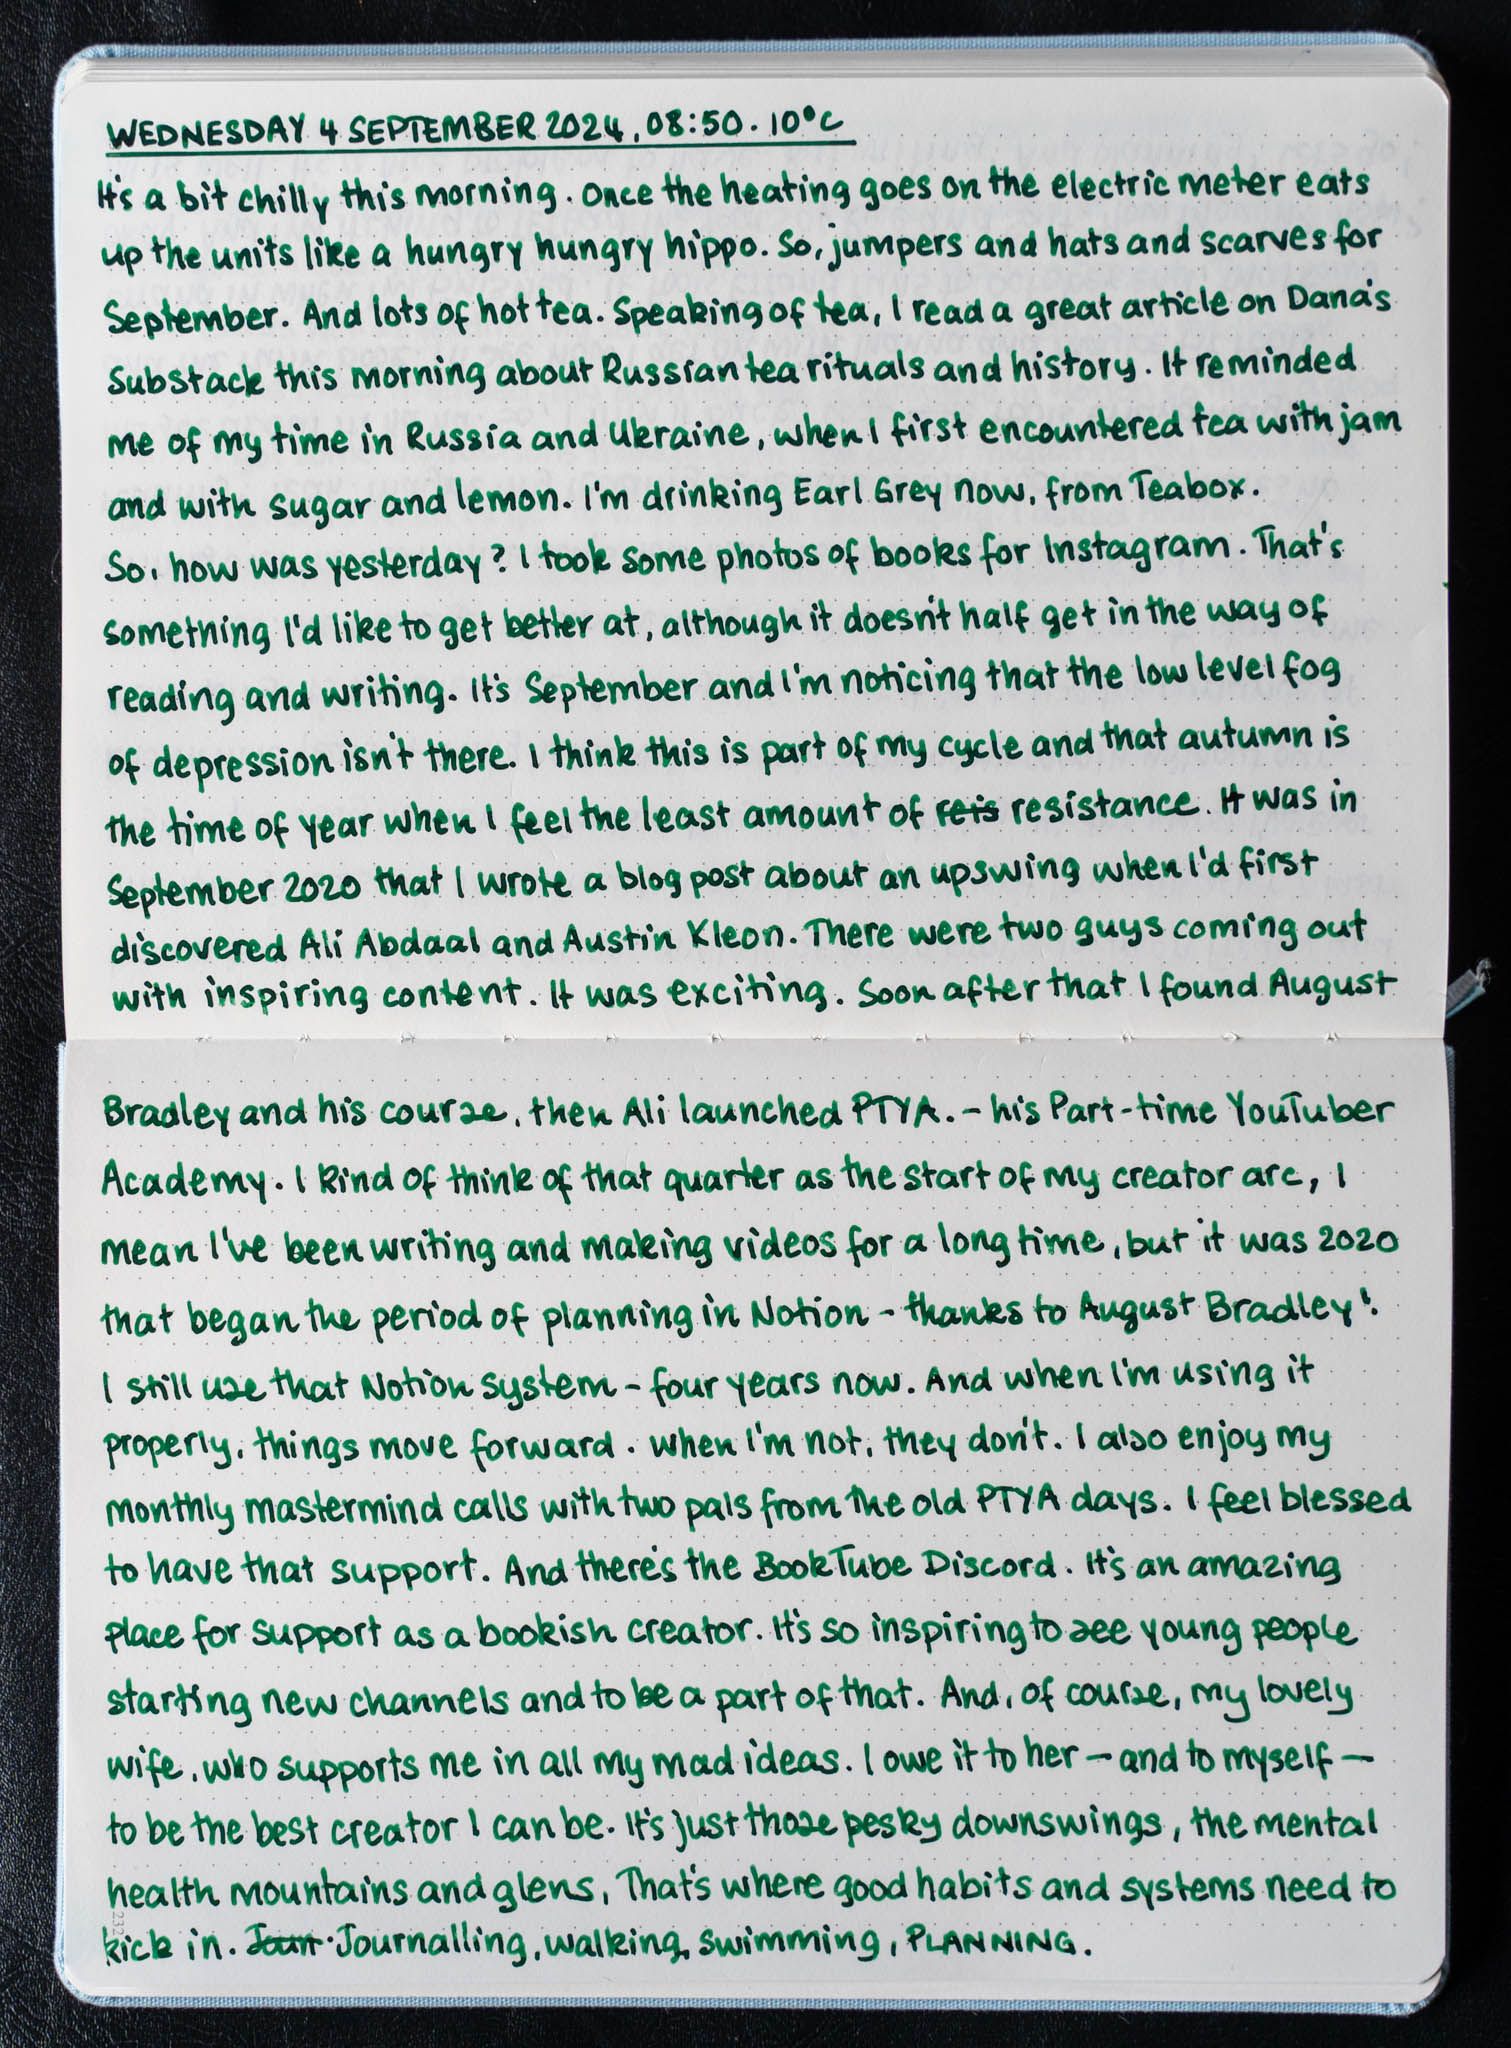 WEDNESDAY 4 SEPTEMBER 2024, 08:50. 10°C
It's a bit chilly this morning. Once the heating goes on the electric meter eats
up the units like a hungry hungry hippo. So, jumpers and hats and scarves for
September. And lots of hot tea. Speaking of tea, I read a great article on Dana's
Substack this morning about Russian tea rituals and history. It reminded
me of my time in Russia and Ukraine, when I first encountered tea with jam
and with sugar and lemon. I'm drinking Earl Grey now, from Teabox.
So, how was yesterday? I took some photos of books for Instagram. That's
something I'd like to get better at, although it doesn't half get in the way of
reading and writing. It's September and I'm noticing that the low level fog
of depression isn't there. I think this is part of my cycle and that autumn is
the time of year when I feel the least amount of reis resistance. It was in
September 2020 that I wrote a blog post about an upswing when I'd first
discovered Ali Abdaal and Austin Kleon. There were two guys coming out
with inspiring content. It was exciting. Soon after that I found August
Bradley and his course, then Ali launched PTYA. – his Part-time YouTuber
Academy. I kind of think of that quarter as the start of my creator arc, I
mean I've been writing and making videos for a long time, but it was 2020
that began the period of planning in Notion – thanks to August Bradley!
I still use that Notion system – four years now. And when I'm using it
properly, things move forward. When I'm not, they don't. I also enjoy my
monthly mastermind calls with two pals from the old PTYA days. I feel blessed
to have that support. And there's the BookTube Discord. It's an amazing
place for support as a bookish creator. It's so inspiring to see young people
starting new channels and to be a part of that. And, of course, my lovely
wife, who supports me in all my mad ideas. I owe it to her – and to myself –
to be the best creator I can be. It's just those pesky downswings, the mental
health mountains and glens, That's where good habits and systems need to
kick in. Joun Journalling, walking, swimming, PLANNING.
232